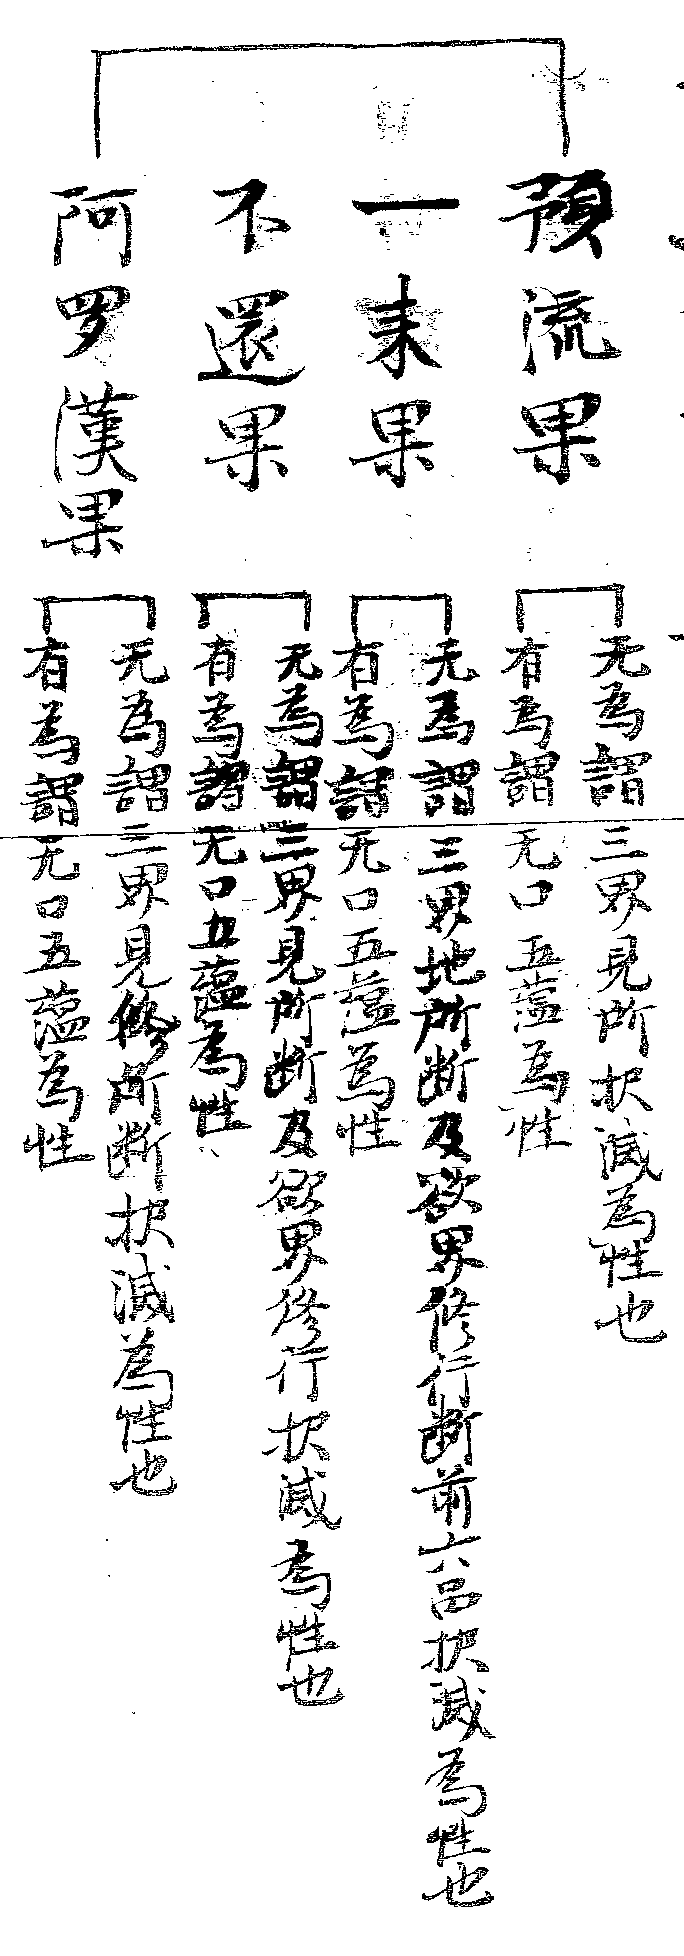 預流果
无為謂三界見所択滅為性也
有為謂无口五蘊為性
一来果
无為謂三界地所断及欲界修行断前六品択滅為性也
有為謂无口五蘊為性
不還果
无為謂三界見所断及欲界修行択滅為性也
有為謂无口五蘊為性
阿罗漢果
无為謂三界見修所断択滅為性也
有為謂无口五蘊為性